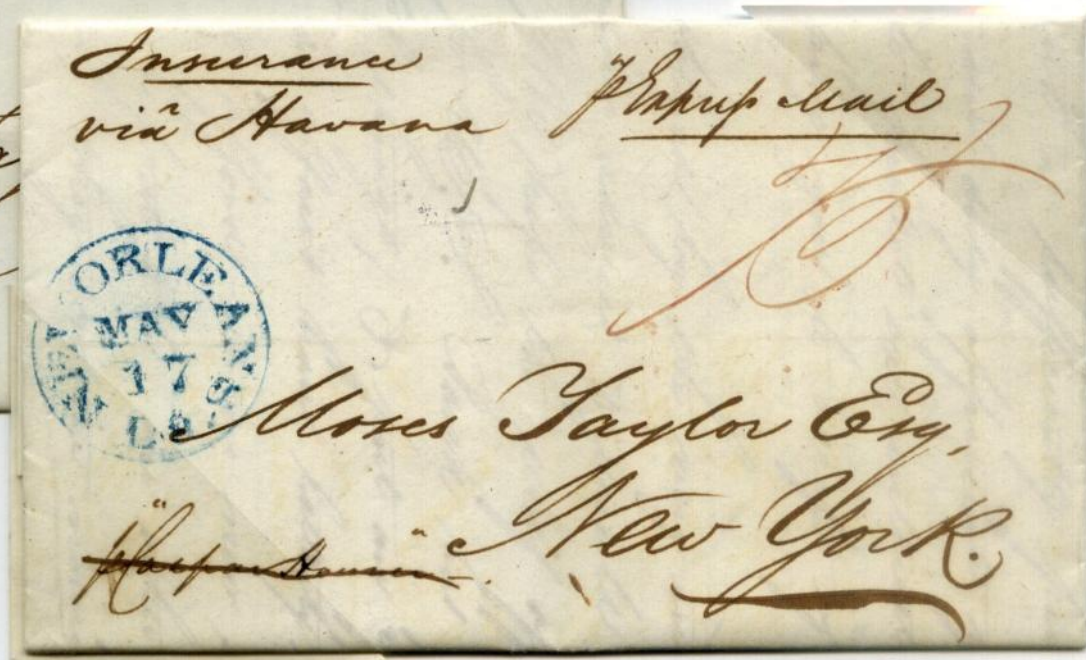 Insurance
viâ Havana
p Express Mail
75
NEW ORLEANS
MAY
17
La.
Moses Taylor Esq.
New York.